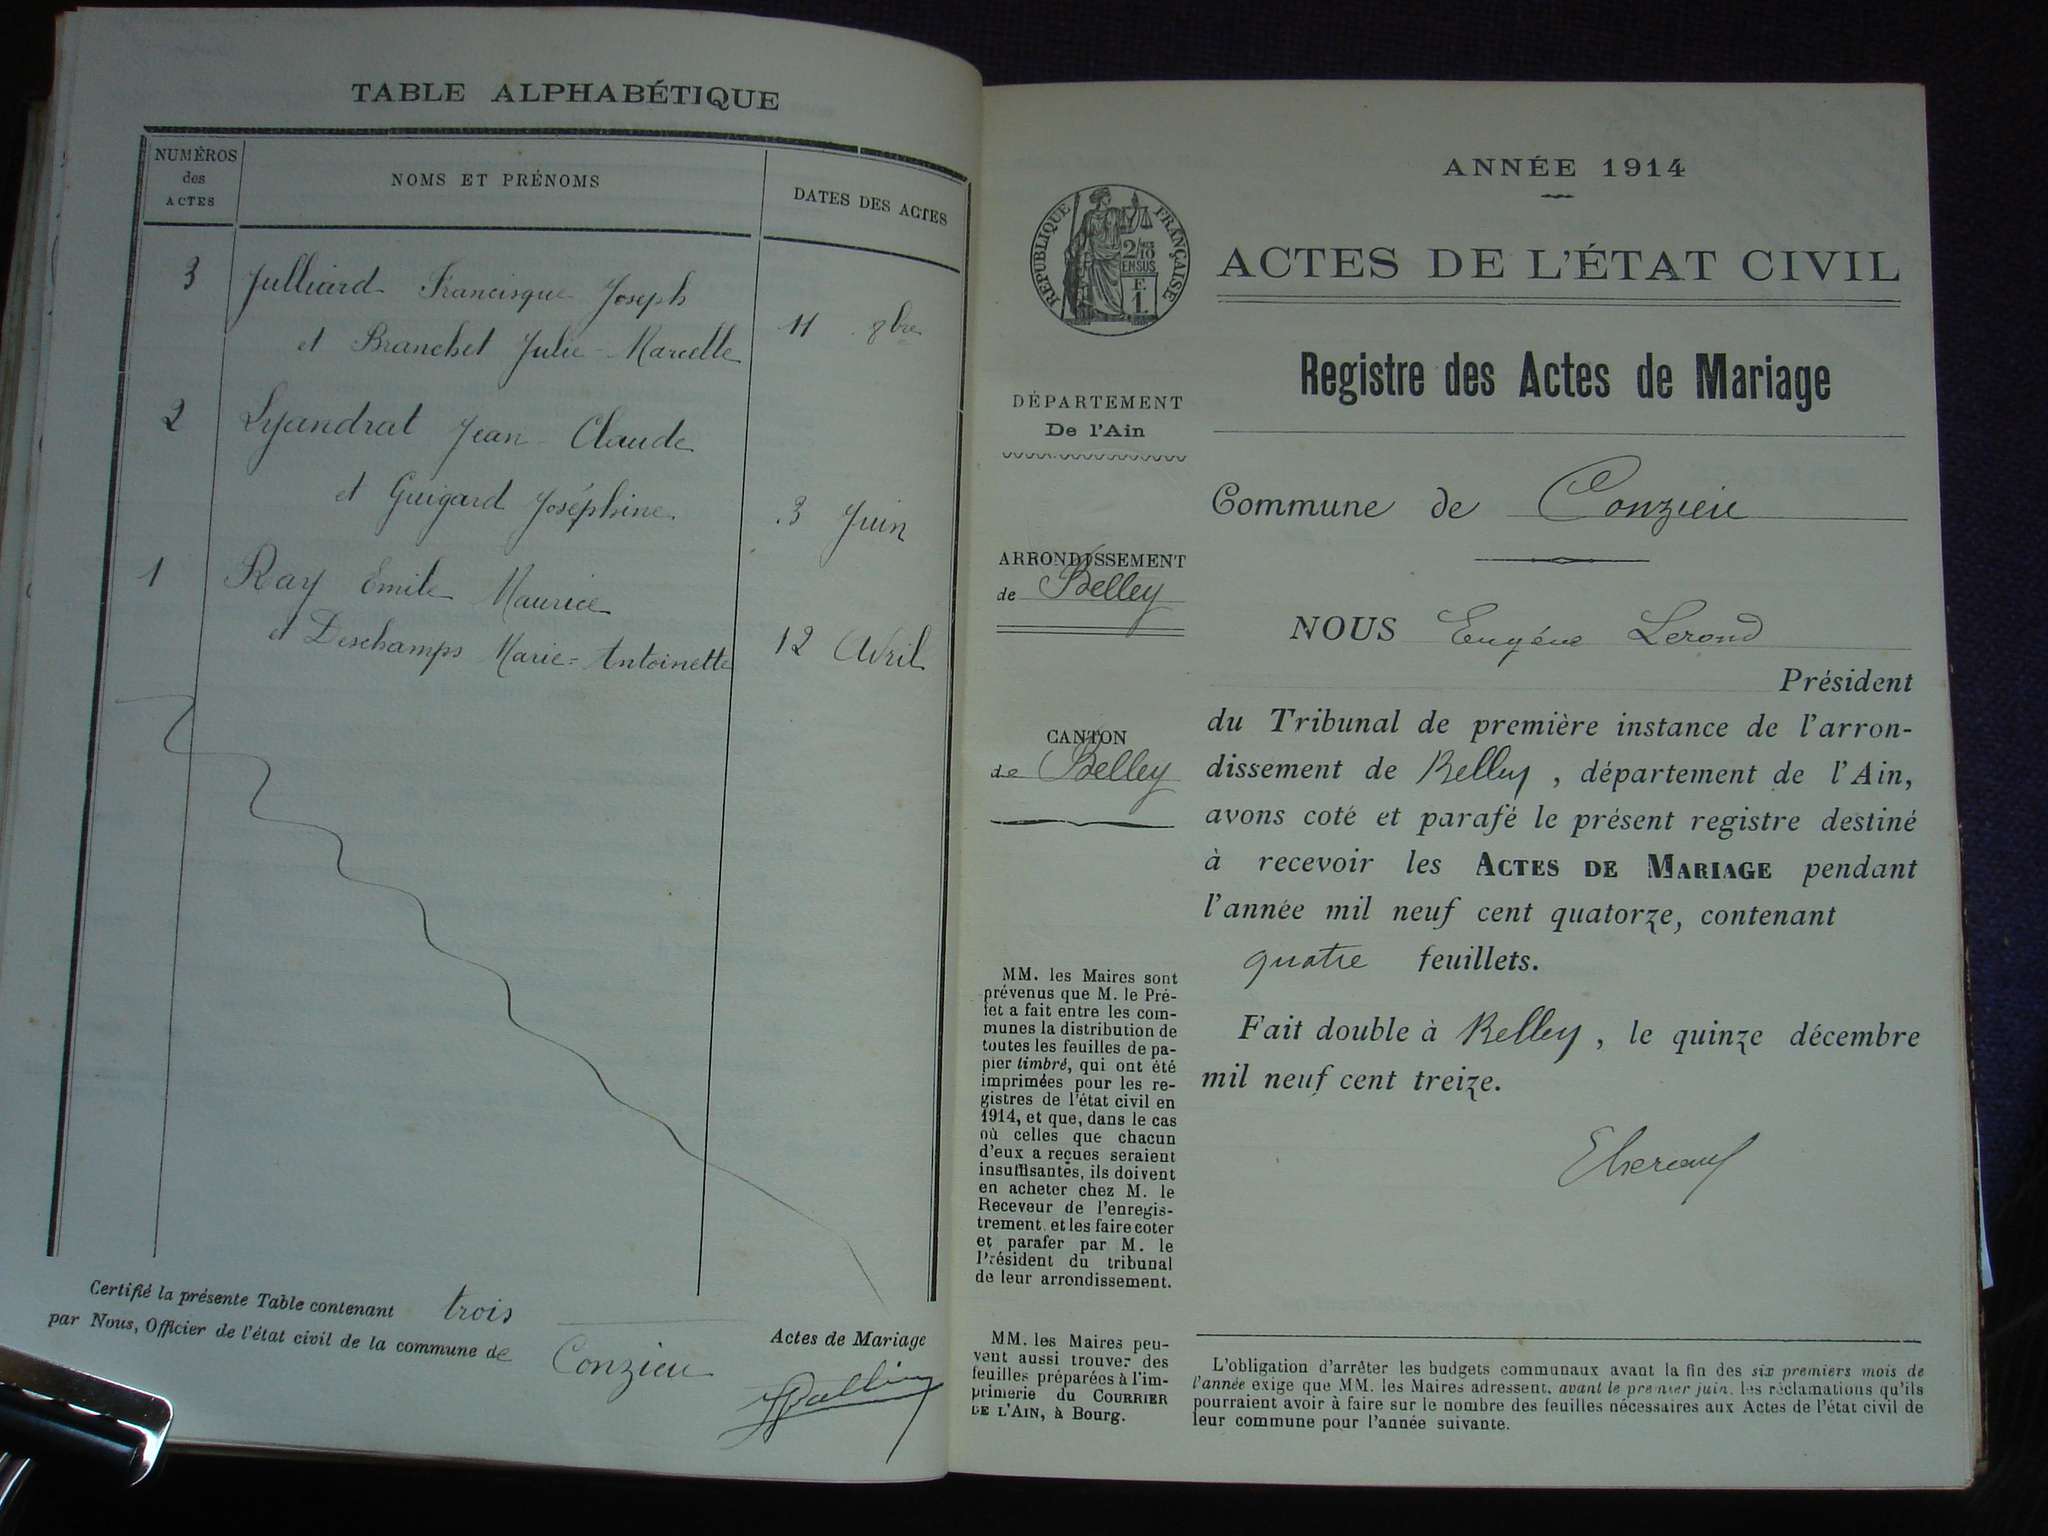 TABLE ALPHABÉTIQUE
NUMÉROS
des
ACTES
NOMS ET PRÉNOMS
DATES DES ACTES
3 Julliard Francisque Joseph
et Branchet Julie-Marcelle 11 8bre
2 Lyandrat Jean-Claude
et Guigard Joséphine 3 Juin
1 Ray Emile Maurice
et Deschamps Marie-Antoinette 12 Avril
Certifié la présente Table contenant trois Actes de Mariage
par Nous, Officier de l'état civil de la commune de Conzieu
ANNÉE 1914
RÉPUBLIQUE FRANÇAISE
2/10
EN SUS
F.
1.
ACTES DE L'ÉTAT CIVIL
Registre des Actes de Mariage
DÉPARTEMENT
De l'Ain
Commune de Conzieu
ARRONDISSEMENT
de Belley
CANTON
de Belley
NOUS Eugène Lerond
Président
du Tribunal de première instance de l'arron-
dissement de Belley, département de l'Ain,
avons coté et parafé le présent registre destiné
à recevoir les ACTES DE MARIAGE pendant
l'année mil neuf cent quatorze, contenant
quatre feuillets.
Fait double à Belley, le quinze décembre
mil neuf cent treize.
MM. les Maires sont
prévenus que M. le Pré-
fet a fait entre les com-
munes la distribution de
toutes les feuilles de pa-
pier timbré, qui ont été
imprimées pour les re-
gistres de l'état civil en
1914, et que, dans le cas
où celles que chacun
d'eux a reçues seraient
insuffisantes, ils doivent
en acheter chez M. le
Receveur de l'enregis-
trement, et les faire coter
et parafer par M. le
Président du tribunal
de leur arrondissement.
MM. les Maires peu-
vent aussi trouver des
feuilles préparées à l'im-
primerie du COURRIER
DE L'AIN, à Bourg.
L'obligation d'arrêter les budgets communaux avant la fin des six premiers mois de
l'année exige que MM. les Maires adressent, avant le premier juin, les réclamations qu'ils
pourraient avoir à faire sur le nombre des feuilles nécessaires aux Actes de l'état civil de
leur commune pour l'année suivante.